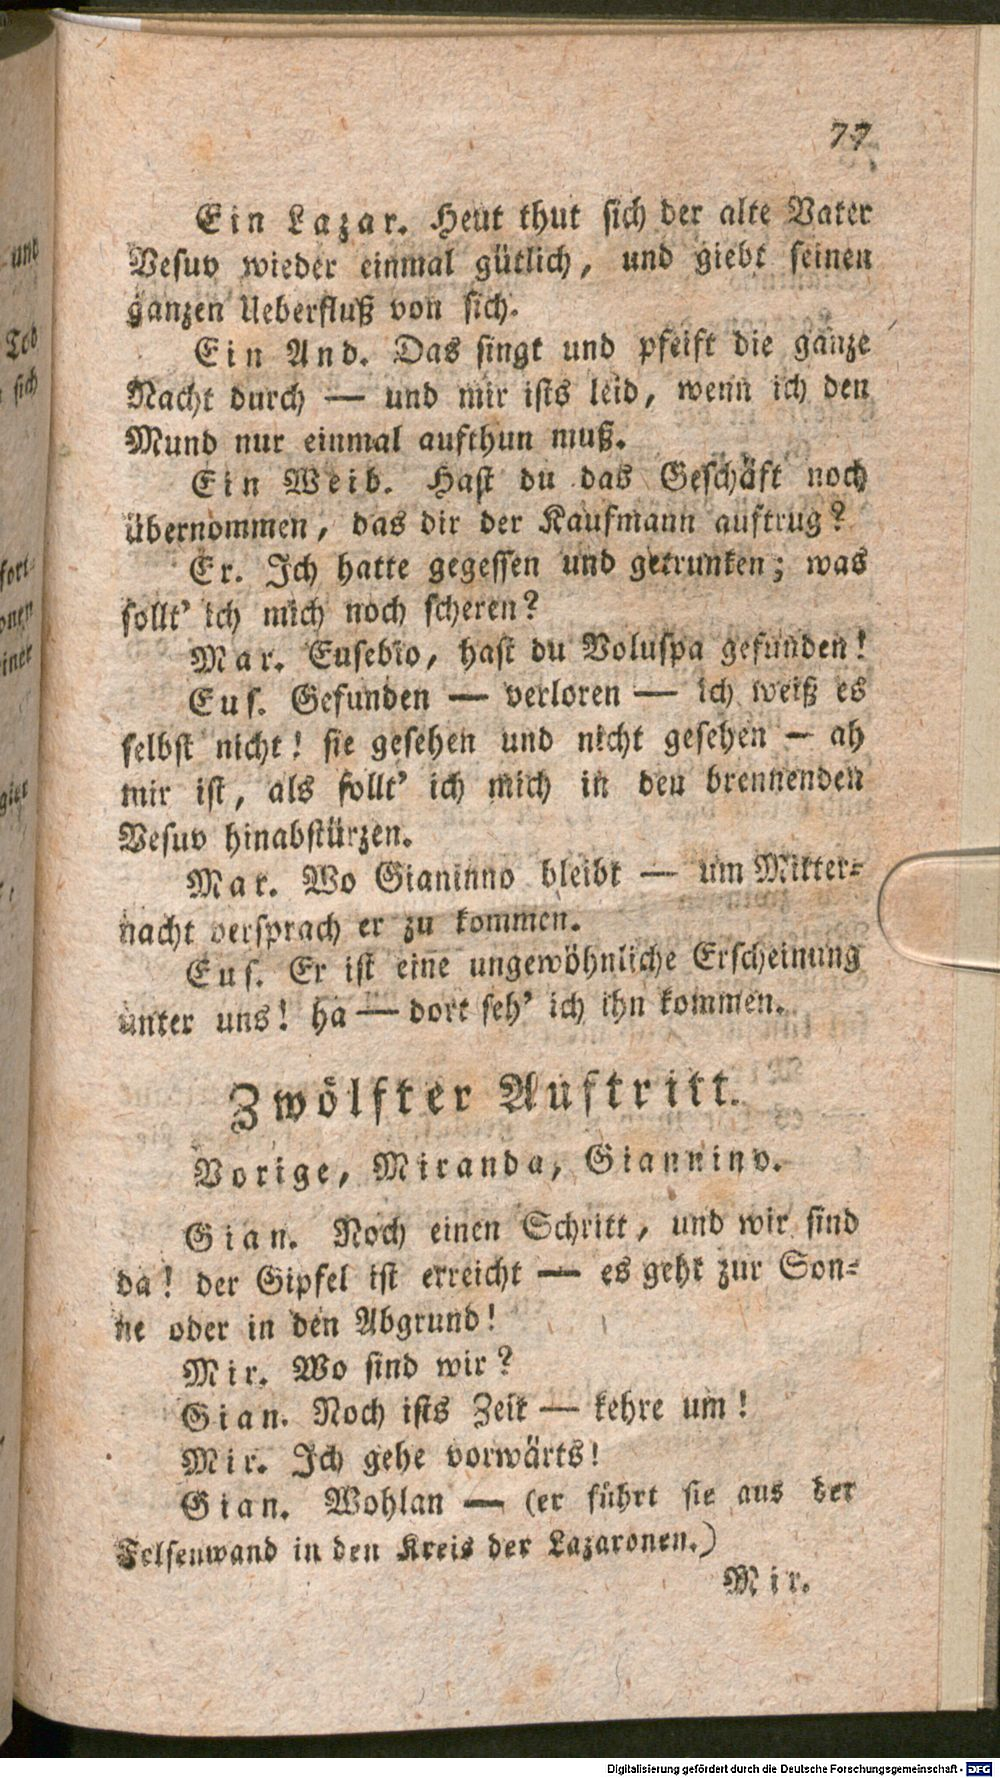 77
Ein Lazar. Heut thut sich der alte Vater
Vesuv wieder einmal gütlich, und giebt seinen
ganzen Ueberfluß von sich.
Ein And. Das singt und pfeift die ganze
Nacht durch — und mir ists leid, wenn ich den
Mund nur einmal aufthun muß.
Ein Weib. Hast du das Geschäft noch
übernommen, das dir der Kaufmann auftrug?
Er. Ich hatte gegessen und getrunken; was
sollt' ich mich noch scheren?
Mar. Eusebio, hast du Voluspa gefunden!
Eus. Gefunden — verloren — ich weiß es
selbst nicht! sie gesehen und nicht gesehen — ah
mir ist, als sollt' ich mich in den brennenden
Vesuv hinabstürzen.
Mar. Wo Gianinno bleibt — um Mitter-
nacht versprach er zu kommen.
Eus. Er ist eine ungewöhnliche Erscheinung
unter uns! ha — dort seh' ich ihn kommen.
Zwölfter Auftritt.
Vorige, Miranda, Giannino.
Gian. Noch einen Schritt, und wir sind
da! der Gipfel ist erreicht — es geht zur Son-
ne oder in den Abgrund!
Mir. Wo sind wir?
Gian. Noch ists Zeit — kehre um!
Mir. Ich gehe vorwärts!
Gian. Wohlan — (er führt sie aus der
Felsenwand in den Kreis der Lazaronen.)
Mir.
und
Tod
sich
fort-
onen
einer
Digitalisierung gefördert durch die Deutsche Forschungsgemeinschaft - DFG